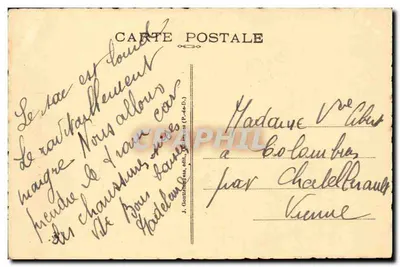 CARTE POSTALE
Le sac est lourd!
Le ravitaillement
maigre Nous allons
prendre le train car
les chaussures
Bons baisers
Madeleine
Madame Vve
à Colombiers
par Chatellerault
Vienne